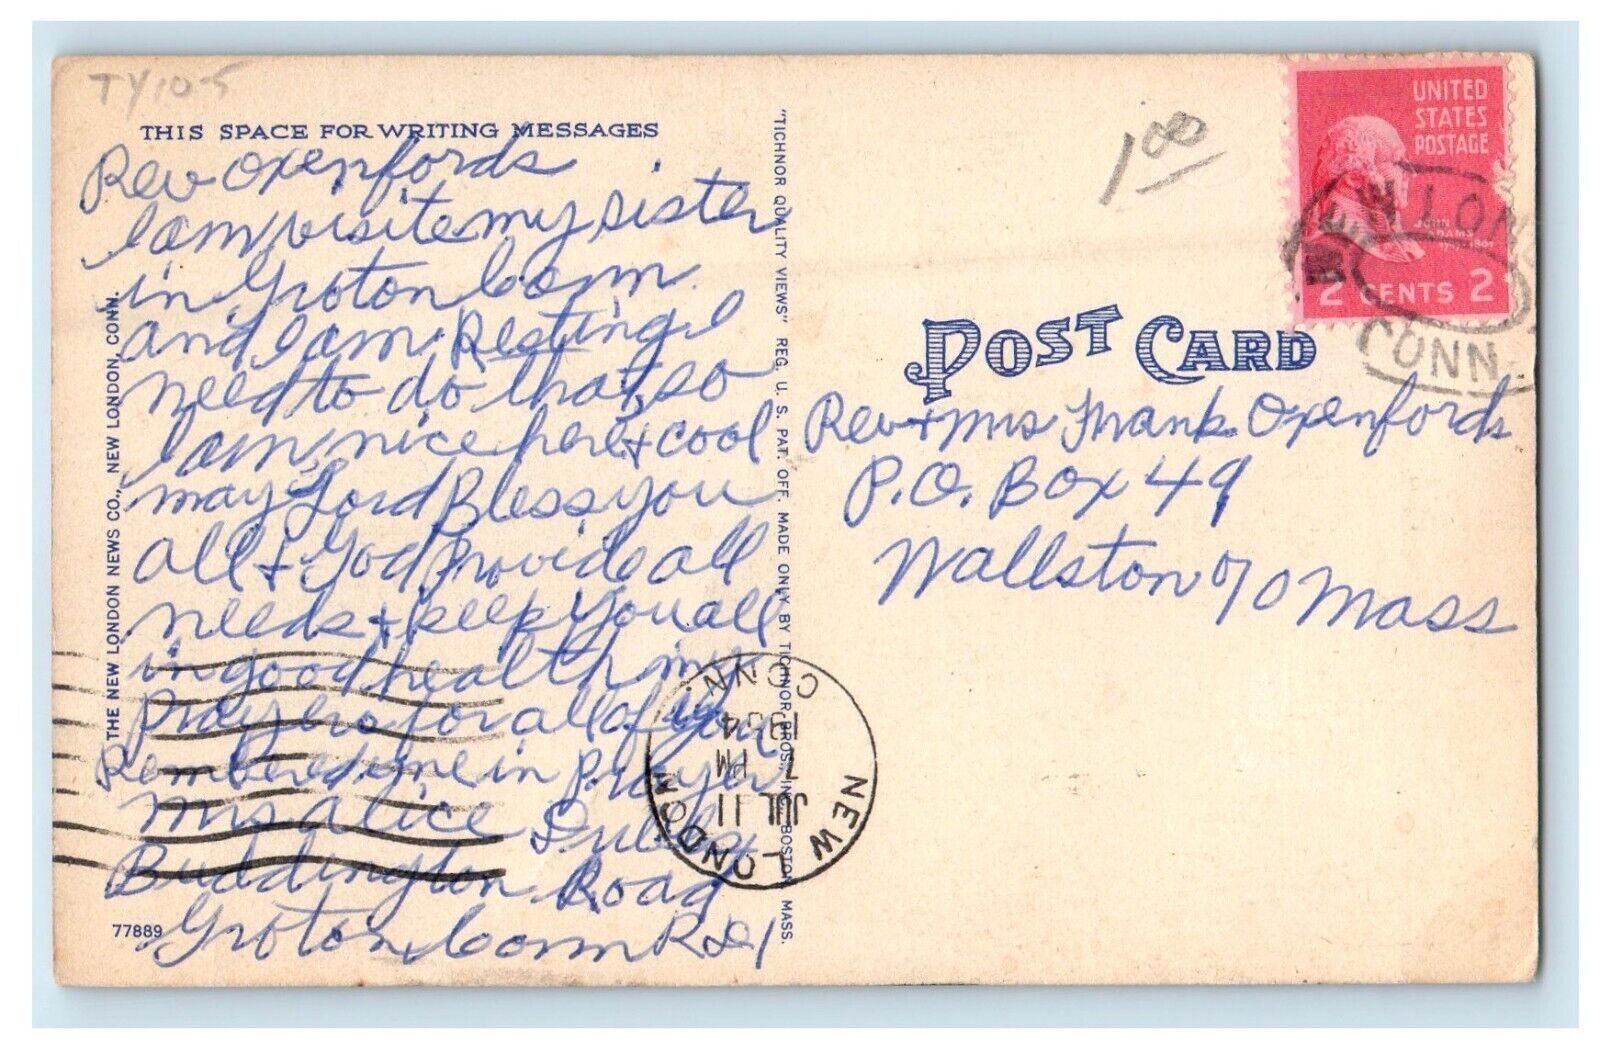 TY105
THIS SPACE FOR WRITING MESSAGES
Rev Oxenfords
I am visite my sister
in Groton Conn
and I am Resting I
need to do that, so
I am nice here + cool
may Lord Bless you
all + God Provide all
needs + keep you all
in good health my
Pray is for all of you
Rembered me in Prayer
Mrs Alice
Buddington Road
Groton Conn R D 1
77889
THE NEW LONDON NEWS CO., NEW LONDON, CONN.
"TICHNOR QUALITY VIEWS" REG. U. S. PAT. OFF. MADE ONLY BY TICHNOR BROS., INC., BOSTON MASS.
NEW LONDON
CONN
JUL 11
7 PM
1954
1 00
UNITED
STATES
POSTAGE
JOHN
ADAMS
2 CENTS 2
NEW LOND
CONN.
POST CARD
Rev + Mrs Frank Oxenfords
P.O. Box 49
Wallston 70 Mass